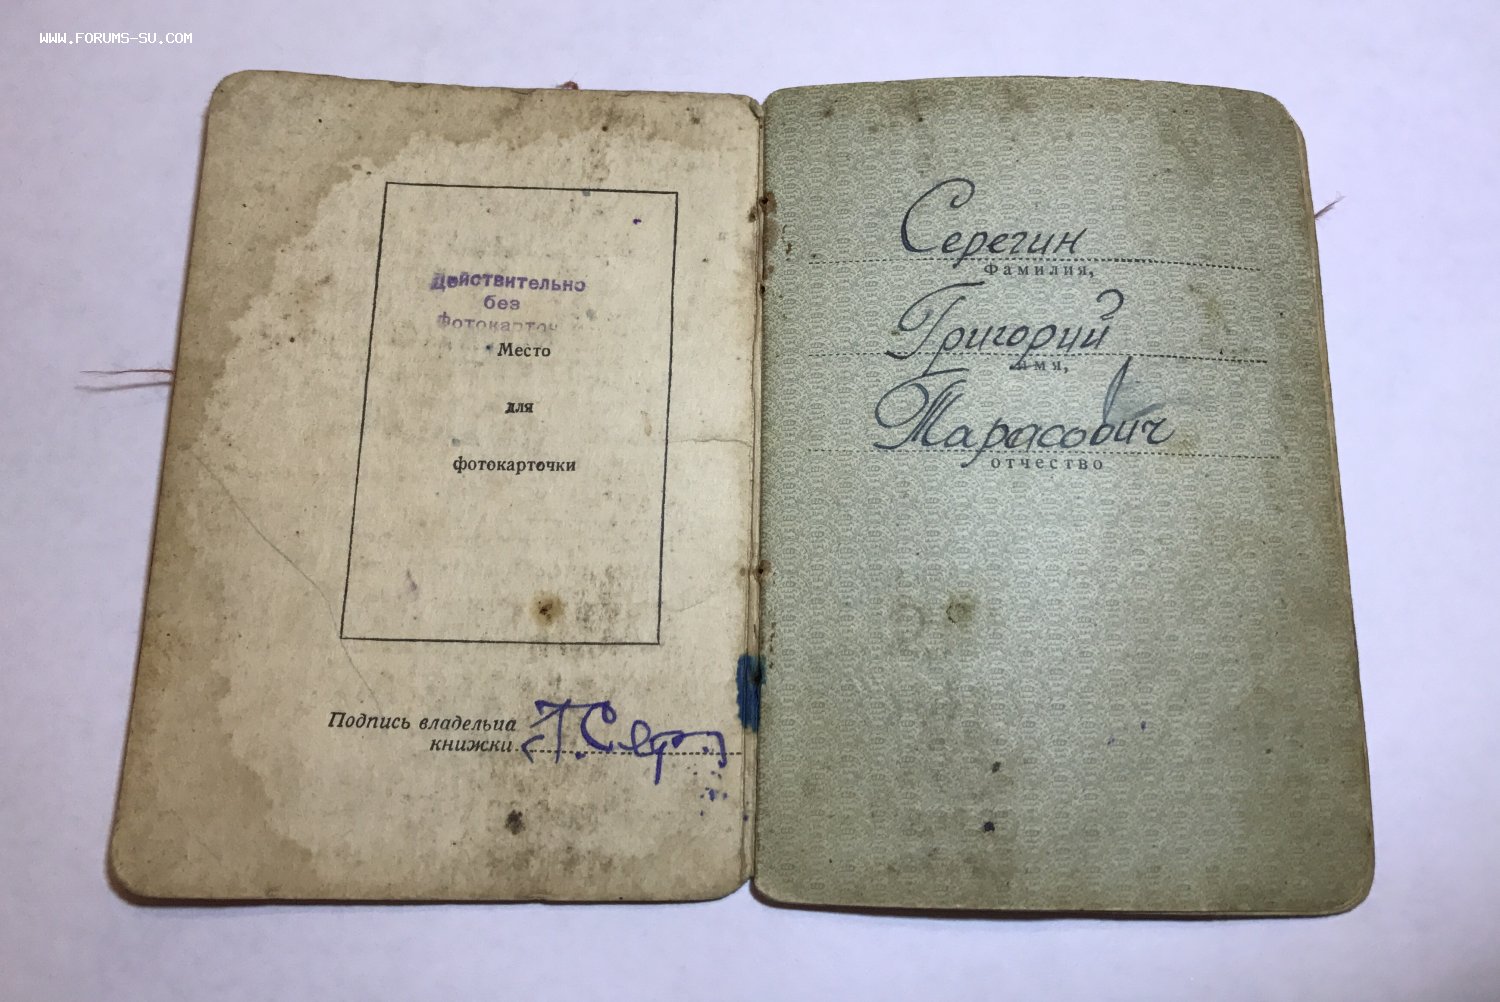 WWW.FORUMS-SU.COM
Действительно
без
Фотокарточ
Место
для
фотокарточки
Подпись владельца
книжки
Г. Сер
Серегин
Фамилия,
Григорий
имя,
Тарасович
отчество